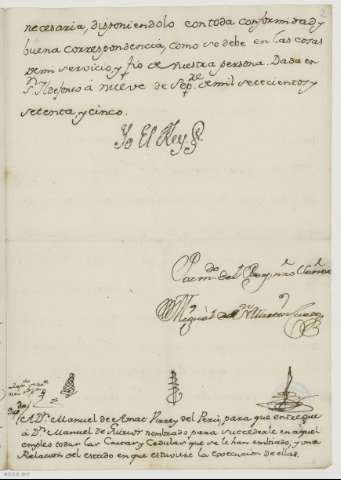 2
necesaria, disponiendolo con toda conformidad, y
buena correspondencia, como se debe en las cosas
de mi servicio, y fio de vuestra persona. Dada en
Sn. Ildefonso à nueve de Sepre. de mil setecientos y
setenta, y cinco.
Yo El Rey
Por mdo. del Rey nro. Señor
Miguel de Sn. Martin Cueto
A Dn. Manuel de Amat Virrey del Perú, para que entregue
à Dn. Manuel de Guirior nombrado para succederle en aquel
empleo todas las Cartas y Cedulas que se le han embiado, y una
Relacion del estado en que estuviese la execucion de ellas.